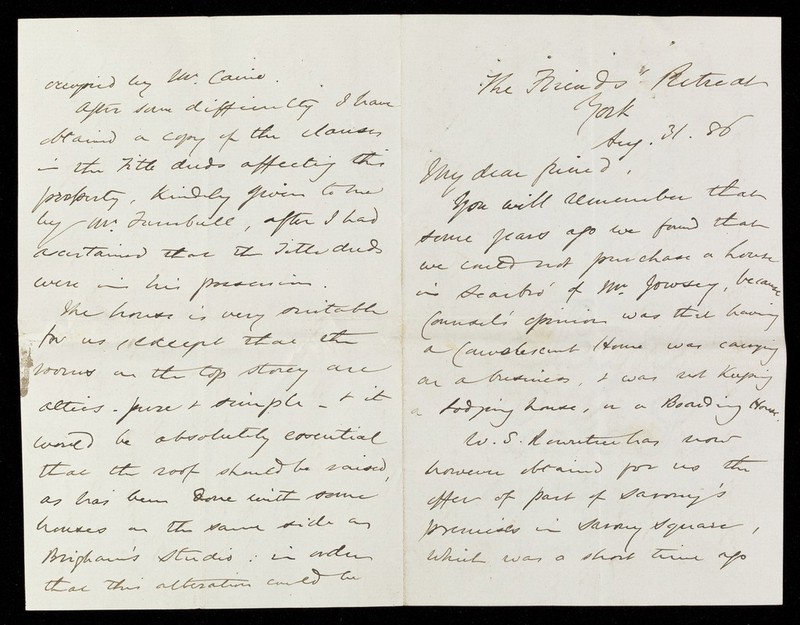 The Friends' Retreat
York
Aug. 31. 86
My dear friend,
You will remember that
some years ago we found that
we could not purchase a house
in Scarbro' of Mr. Jowsey, because
Counsel's opinion was that having
a Convalescent Home was carrying
on a business, & was not keeping
a Lodging house, or a Boarding House.
W. S. Rowntree has now
however obtained for us the
offer of part of Savory's
premises in Savoy Square,
which was a short time ago
occupied by Mr. Caine.
After some difficulty I have
obtained a copy of the clauses
in the Title deeds affecting this
property, kindly given to me
by Mr. Turnbull, after I had
ascertained that the Title deeds
were in his possession.
The house is very suitable
for us, except that the
rooms on the top storey are
attics - pure & simple - & it
would be absolutely essential
that the roof should be raised,
as has been done with some
houses on the same side as
Brigham's Studio: in order
that this alteration could be